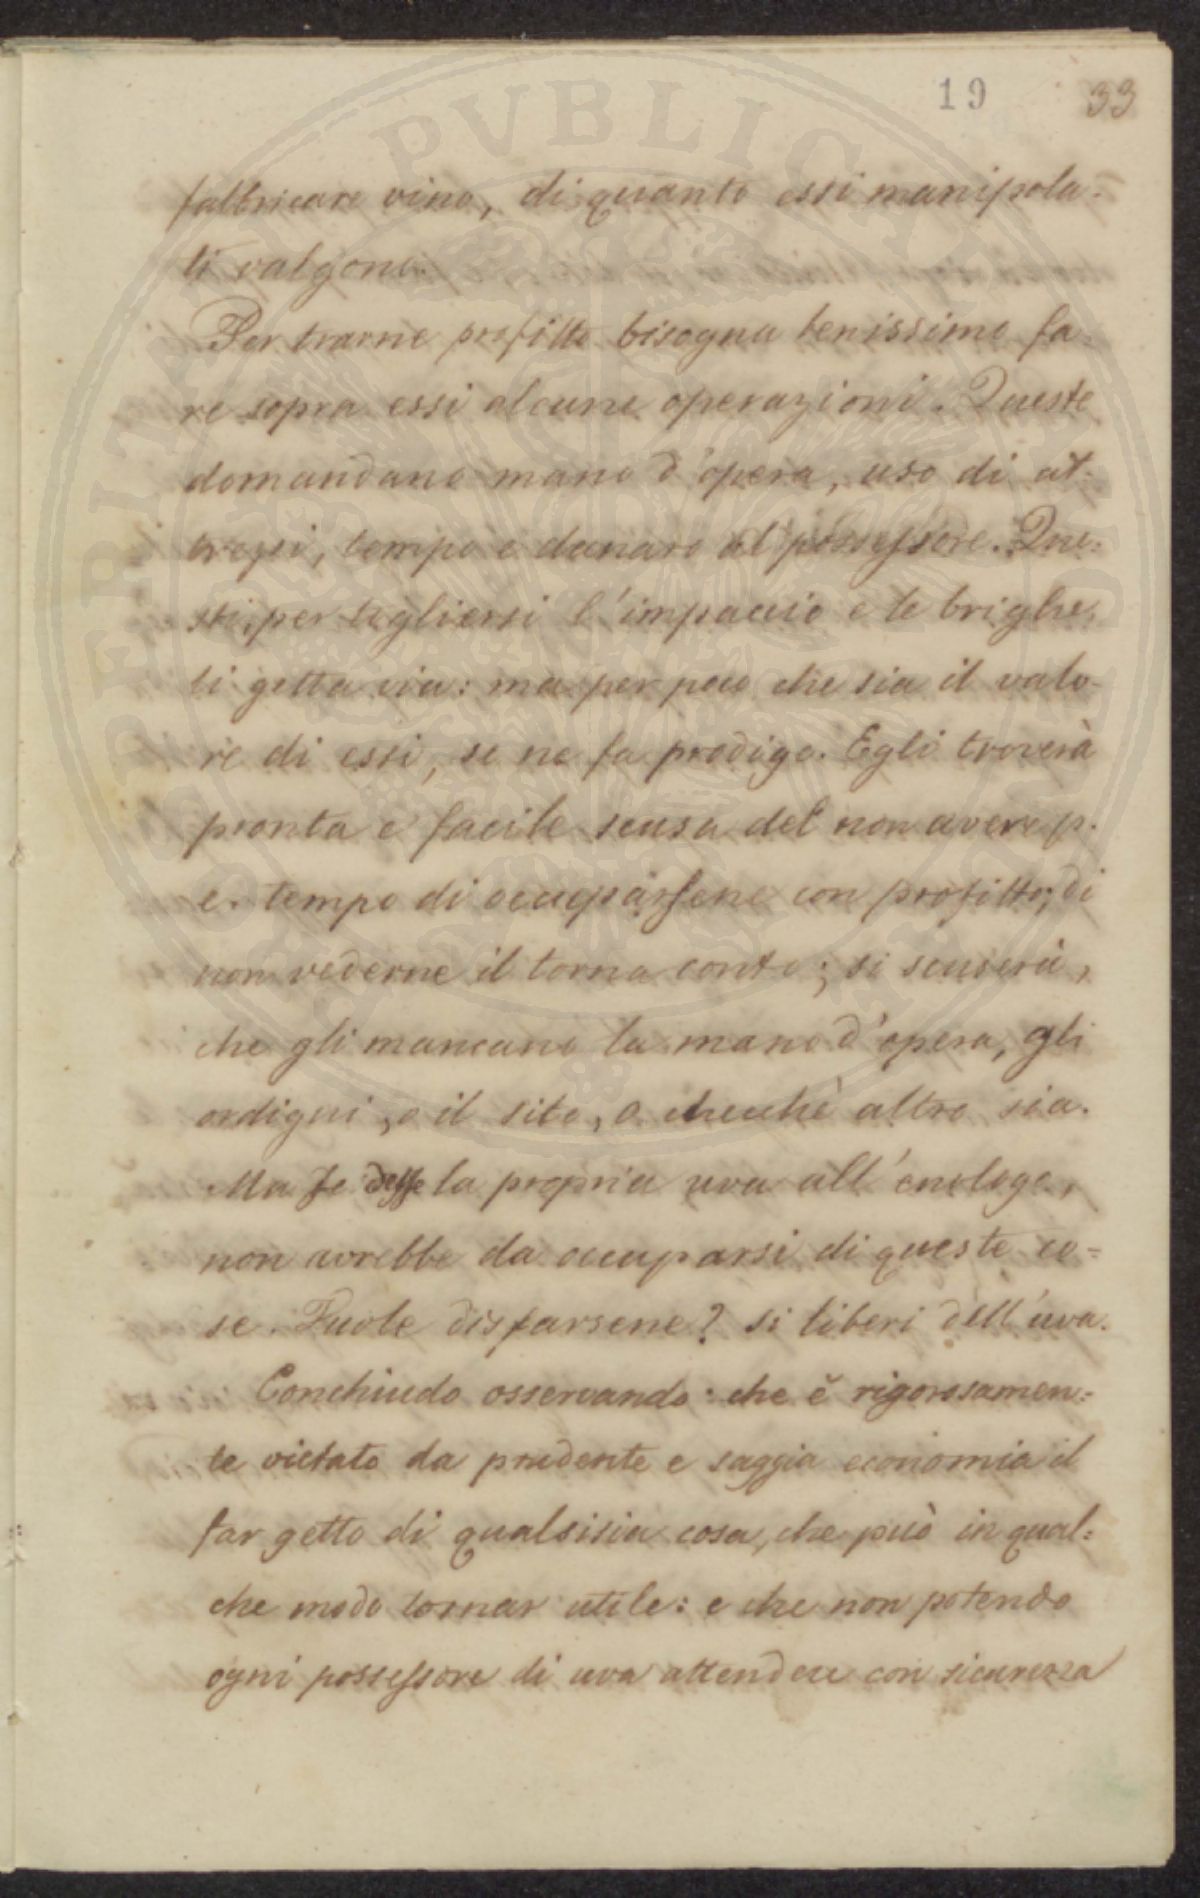 19 33
fabbricare vino, di quanto essi manipola-
ti valgono.
Per trarne profitto bisogna benissimo fa-
re sopra essi alcune operazioni. Queste
domandano mano d'opera, uso di at-
trezzi, tempo e danaro al possessore. Que-
sti, per togliersi l'impaccio e le brighe,
li getta via: ma per poco che sia il valo-
re di essi, se ne fa prodigo. Egli troverà
pronta e facile scusa del non avere p.
e. tempo di occuparsene con profitto; di
non vederne il torna conto; si scuserà,
che gli mancano la mano d'opera, gli
ordigni, o il sito, o checchè altro sia.
Ma se desse la propria uva all'enologo,
non avrebbe da occuparsi di queste co=
se. Vuole disfarsene? si liberi dell'uva.
Conchiudo osservando: che è rigorosamen=
te vietato da prudente e saggia economia il
far getto di qualsisia cosa, che può in qual=
che modo tornar utile: e che non potendo
ogni possessore di uva attendere con sicurezza
PROSPERITATI PVBLICAE